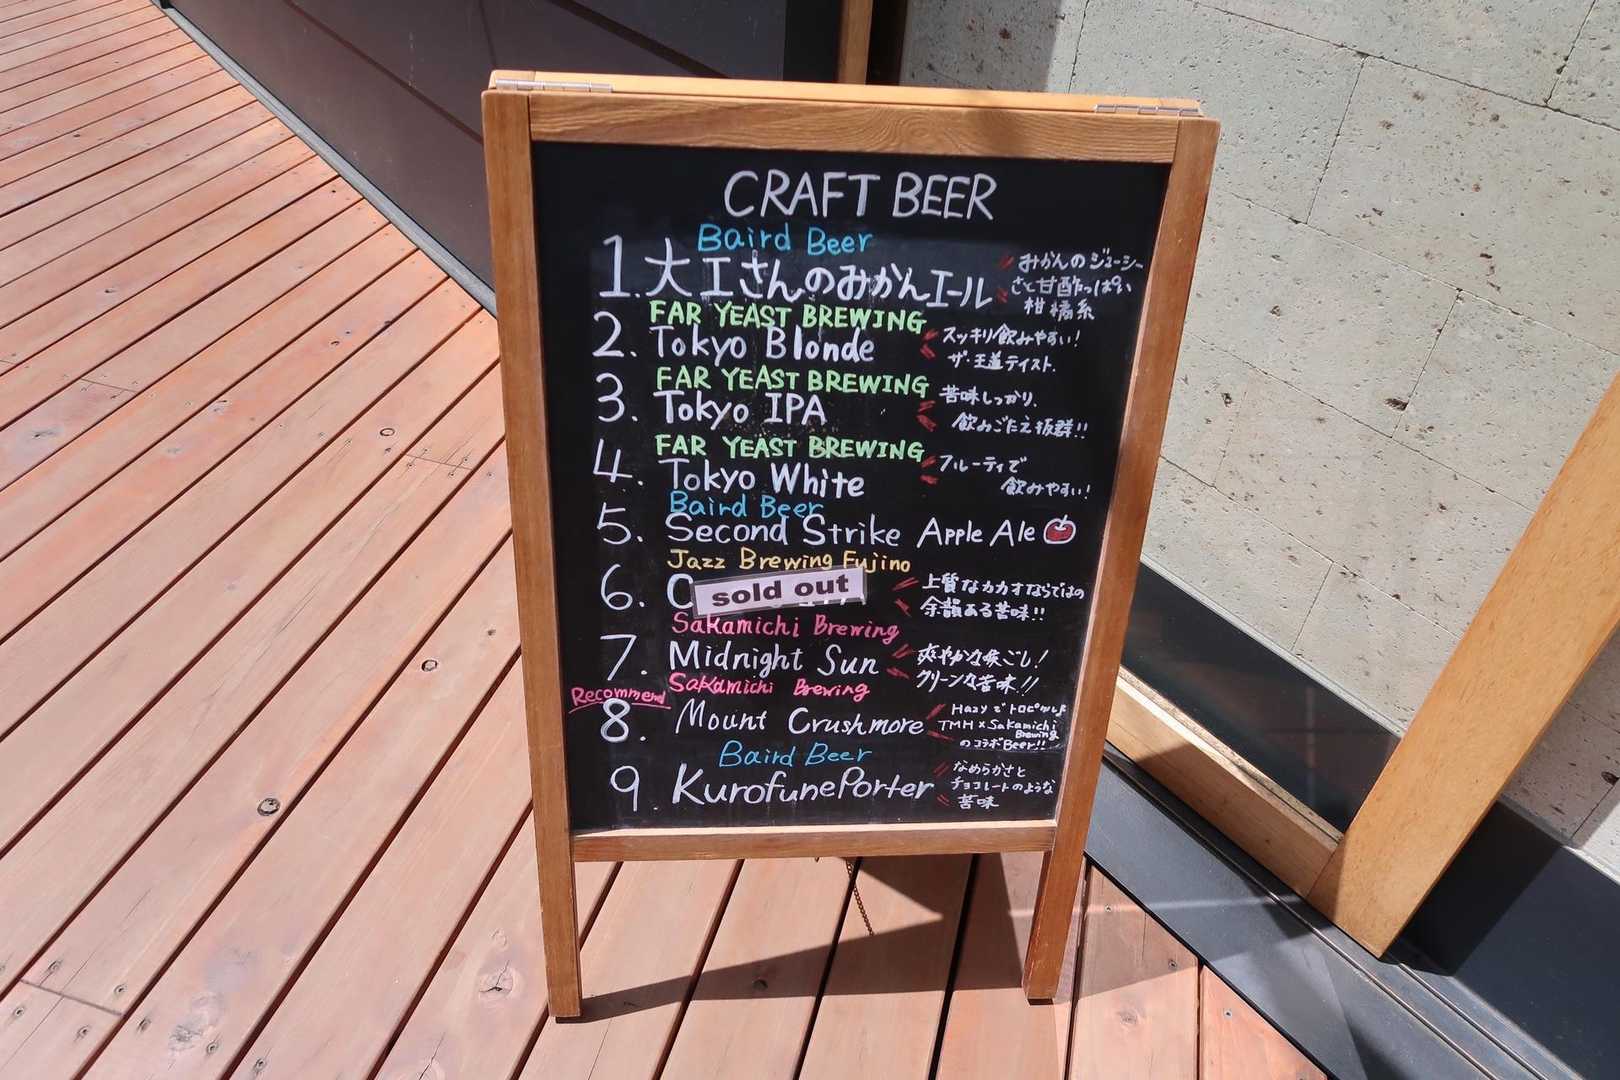 CRAFT BEER
Baird Beer
1. 大工さんのみかんエール
みかんのジューシー
さと甘酸っぱい
柑橘系
FAR YEAST BREWING
2. Tokyo Blonde
スッキリ飲みやすい!
ザ・王道テイスト.
FAR YEAST BREWING
3. Tokyo IPA
苦味しっかり、
飲みごたえ抜群!!
FAR YEAST BREWING
4. Tokyo White
フルーティで
飲みやすい!
Baird Beer
5. Second Strike Apple Ale
Jazz Brewing Fujino
6.
sold out
上質なカカオならではの
余韻ある苦味!!
Sakamichi Brewing
7. Midnight Sun
爽やかな喉ごし!
クリーンな苦味!!
Sakamichi Brewing
Recommend
8. Mount Crushmore
Hazyでトロピカル
TMH×Sakamichi
Brewing
のコラボBeer!!
Baird Beer
9. Kurofune Porter
なめらかさと
チョコレートのような
苦味